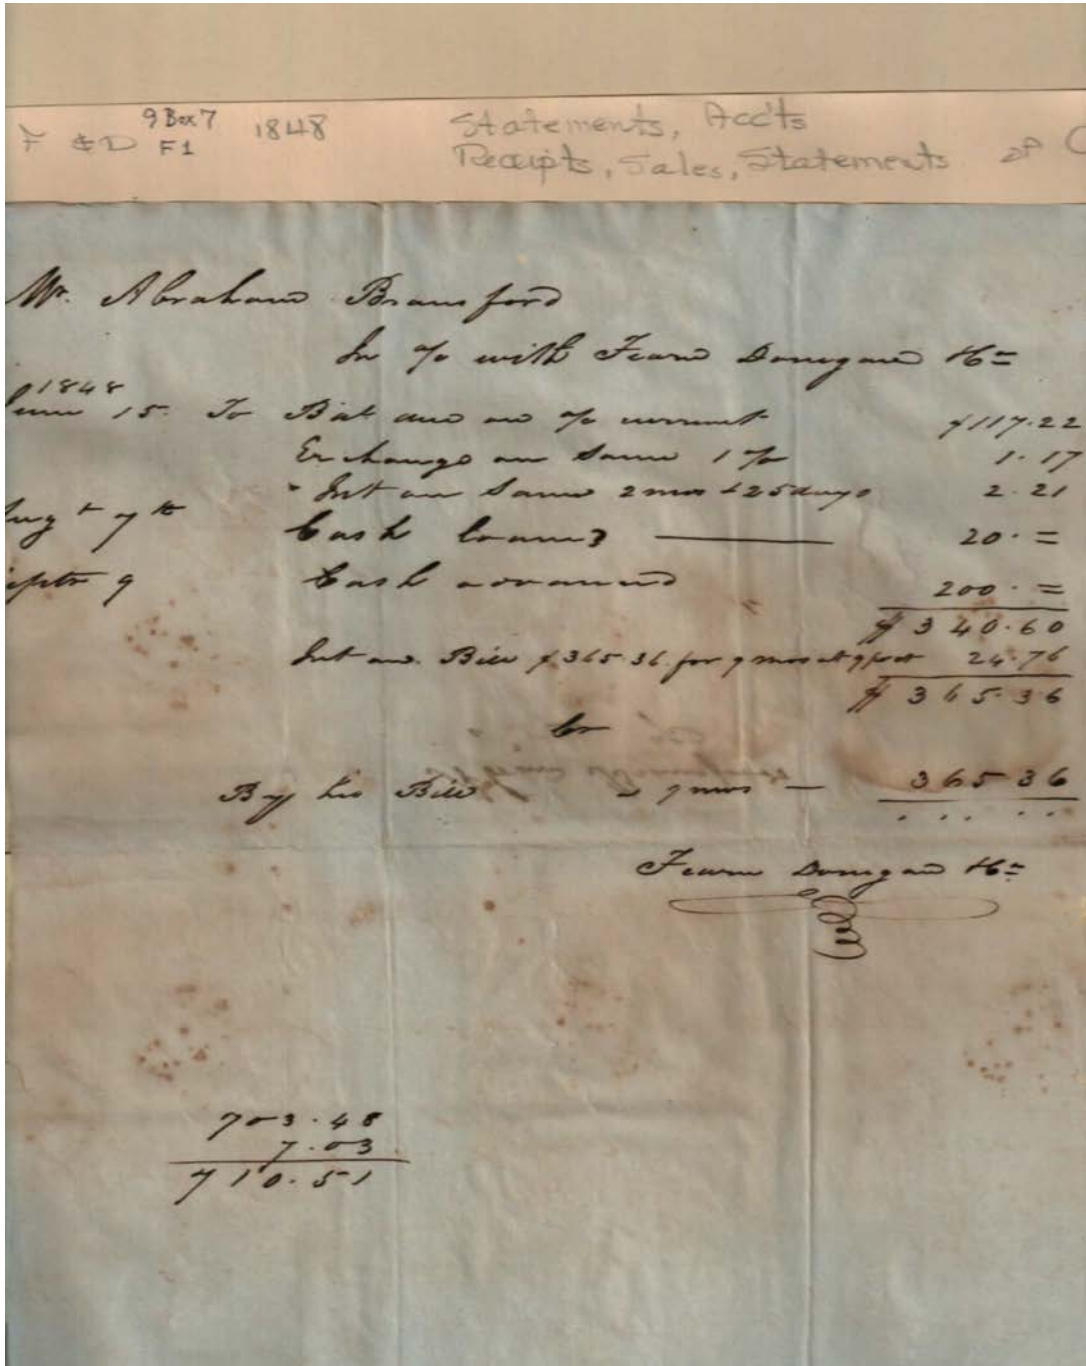 F & D 9 Box 7 F1 1848 Statements, Acc'ts
Receipts, Sales, Statements of C
Mr. Abraham Bransford
In a/c with Fearn Donegan & Co
1848
June 15. To Bal due on a/c current $117.22
Exchange on Same 1 % 1.17
" Int on Same 2 mos & 25 days 2.21
Augt 7th Cash loaned 20.=
Septr 9 Cash advanced 200.=
$340.60
Int on Bill $365.36 for 9 mos at 9 pct 24.76
$365.36
Cr
By his Bill 9 mos — 365.36
Fearn Donegan & Co
703.48
7.03
710.51